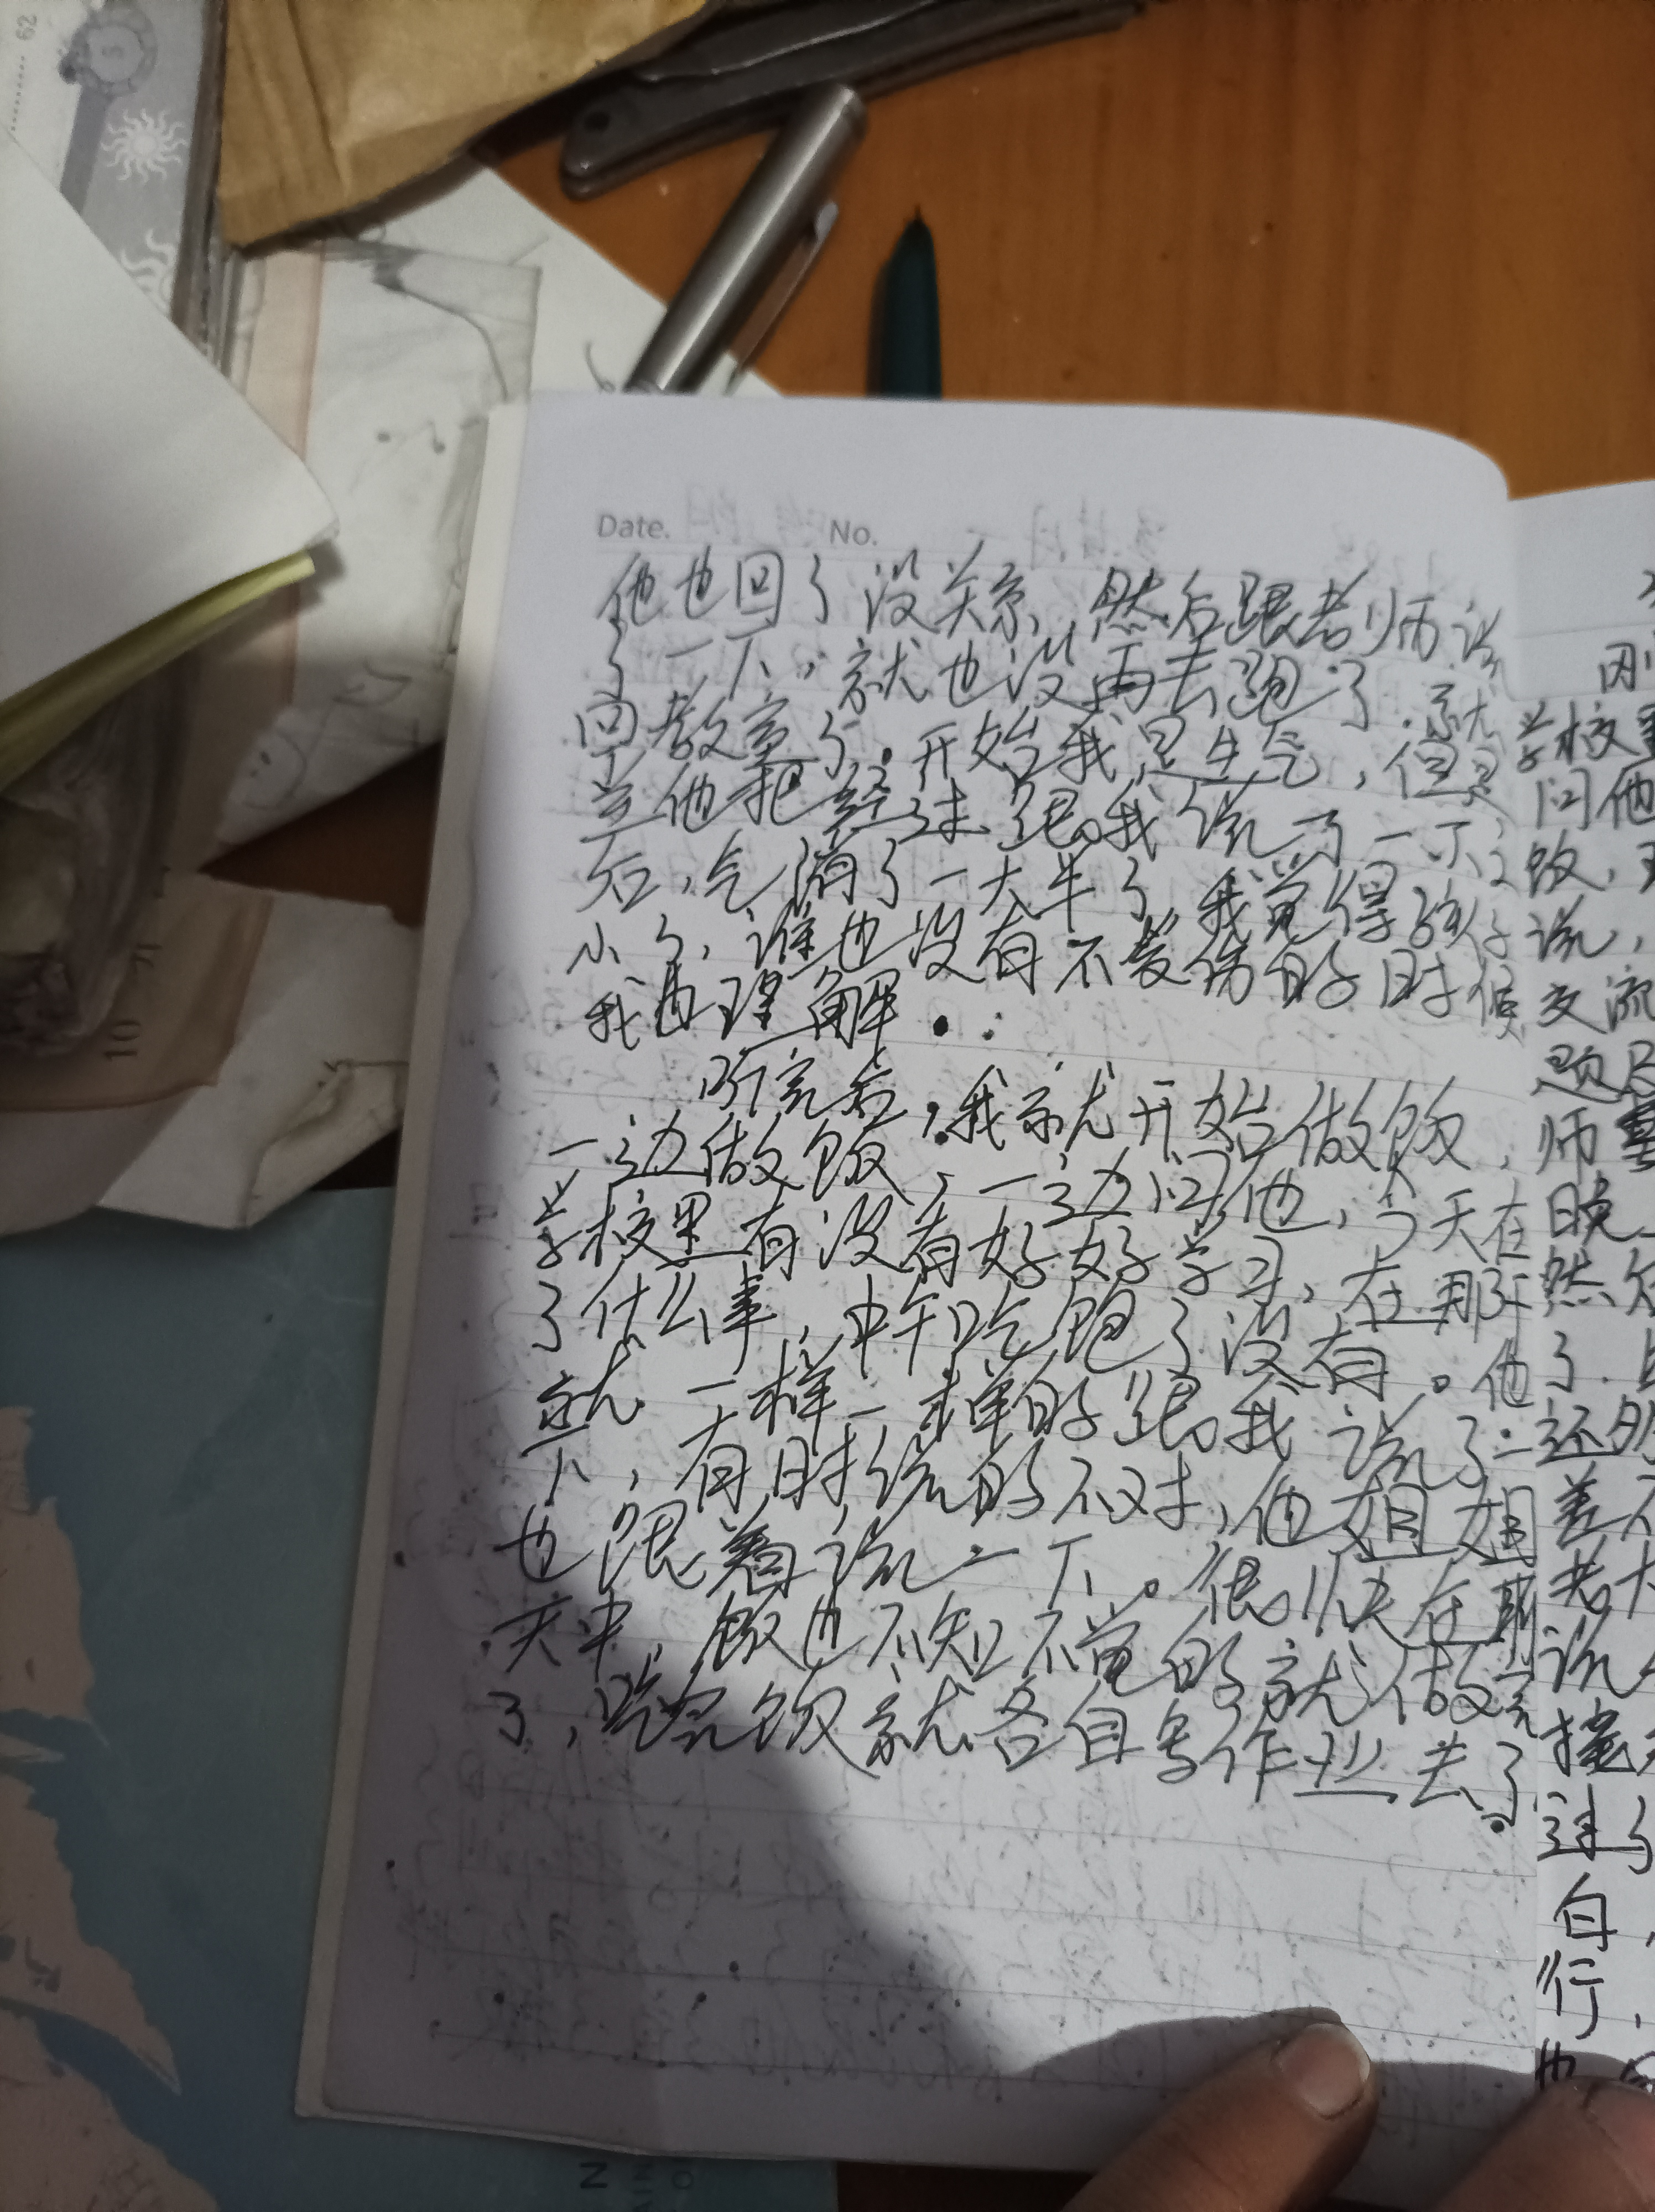 Date. No.
他也回了没关系,然后跟老师说
了一下,就也没再去跑了.就
回教室了.开始我是生气,但是
等他把经过跟我说了一下
后,气消了一大半了,我觉得孩子
小了,谁也没有不受伤的时候
我也理解.
听完后,我就开始做饭,
一边做饭,一边问他,今天在
学校里有没有好好学习,在那干
了什么事,中午吃饱了没有。他
就一样一样的跟我说了一
下,有时说的不对,他姐姐
也跟着说一下。很快在聊
天中,饭也不知不觉的就做完
了,吃完饭就各自写作业去了.
刚
学校里
问他
饭,
说,
交流
题
师
晚
然
了.
还
差不
老
说
接
过了
自,
行,
他
62
10
N